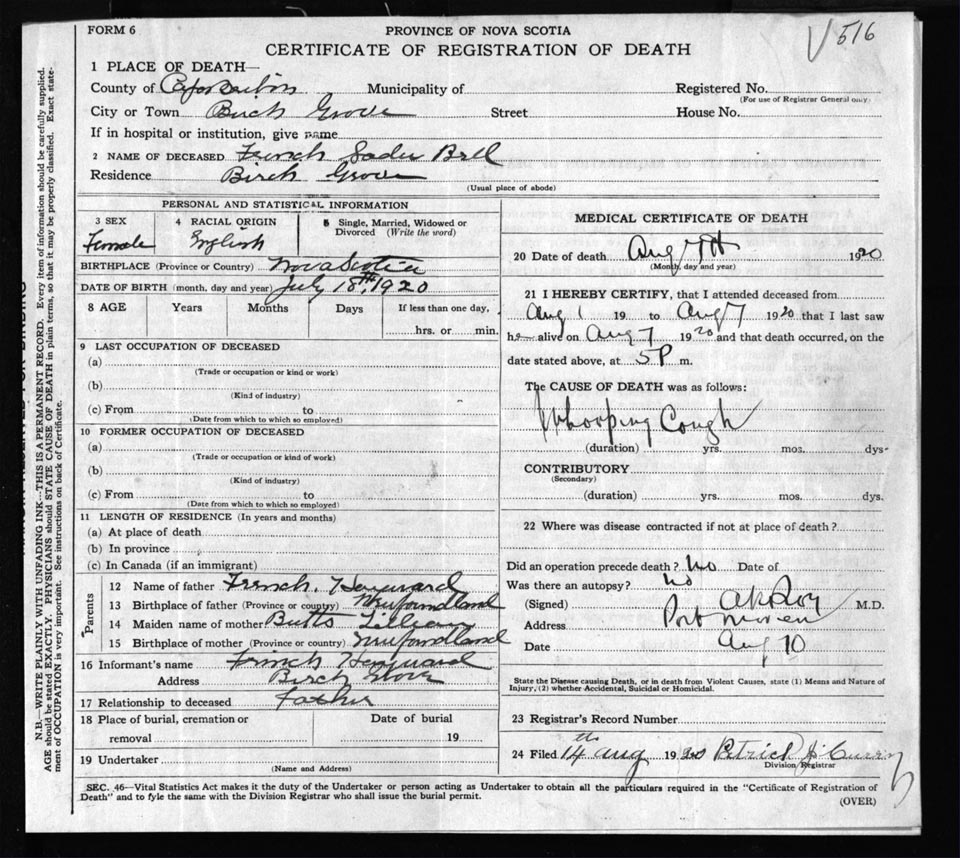 FORM 6
PROVINCE OF NOVA SCOTIA
516
CERTIFICATE OF REGISTRATION OF DEATH
1 PLACE OF DEATH—
County of Municipality of Registered No.
(For use of Registrar General only)
City or Town Birch Grove Street House No.
If in hospital or institution, give name
2 NAME OF DECEASED French Sadie Bell
Residence Birch Grove
(Usual place of abode)
PERSONAL AND STATISTICAL INFORMATION
3 SEX 4 RACIAL ORIGIN 5 Single, Married, Widowed or Divorced (Write the word)
Female English
BIRTHPLACE (Province or Country) Nova Scotia
DATE OF BIRTH (month, day and year) July 18TH, 1920
8 AGE Years Months Days If less than one day,
hrs. or min.
9 LAST OCCUPATION OF DECEASED
(a)
(Trade or occupation or kind or work)
(b)
(Kind of industry)
(c) From to
(Date from which to which so employed)
10 FORMER OCCUPATION OF DECEASED
(a)
(Trade or occupation or kind of work)
(b)
(Kind of industry)
(c) From to
(Date from which to which so employed)
11 LENGTH OF RESIDENCE (In years and months)
(a) At place of death
(b) In province
(c) In Canada (if an immigrant)
Parents
12 Name of father French,
13 Birthplace of father (Province or country) Newfoundland
14 Maiden name of mother Butts Lillian
15 Birthplace of mother (Province or country) Newfoundland
16 Informant's name French
Address Birch Grove
17 Relationship to deceased Father
18 Place of burial, cremation or Date of burial
removal 19
19 Undertaker
(Name and Address)
MEDICAL CERTIFICATE OF DEATH
20 Date of death Aug 7th 1920
(Month, day and year)
21 I HEREBY CERTIFY, that I attended deceased from
Aug 1 19 to Aug 7 1920 that I last saw
h alive on Aug 7 1920 and that death occurred, on the
date stated above, at 5P m.
The CAUSE OF DEATH was as follows:
Whooping Cough
(duration) yrs. mos. dys.
CONTRIBUTORY
(Secondary)
(duration) yrs. mos. dys.
22 Where was disease contracted if not at place of death?
Did an operation precede death? No Date of
Was there an autopsy? No
(Signed) M.D.
Address Port Morien
Date Aug 10
State the Disease causing Death, or in death from Violent Causes, state (1) Means and Nature of
Injury, (2) whether Accidental, Suicidal or Homicidal.
23 Registrar's Record Number
24 Filed 14th Aug 1920
Division Registrar
SEC. 46—Vital Statistics Act makes it the duty of the Undertaker or person acting as Undertaker to obtain all the particulars required in the "Certificate of Registration of
Death" and to fyle the same with the Division Registrar who shall issue the burial permit.
(OVER)
N.B.—WRITE PLAINLY WITH UNFADING INK—THIS IS A PERMANENT RECORD. Every item of information should be carefully supplied.
AGE should be stated EXACTLY. PHYSICIANS should STATE CAUSE OF DEATH in plain terms, so that it may be properly classified. Exact state-
ment of OCCUPATION is very important. See instructions on back of Certificate.